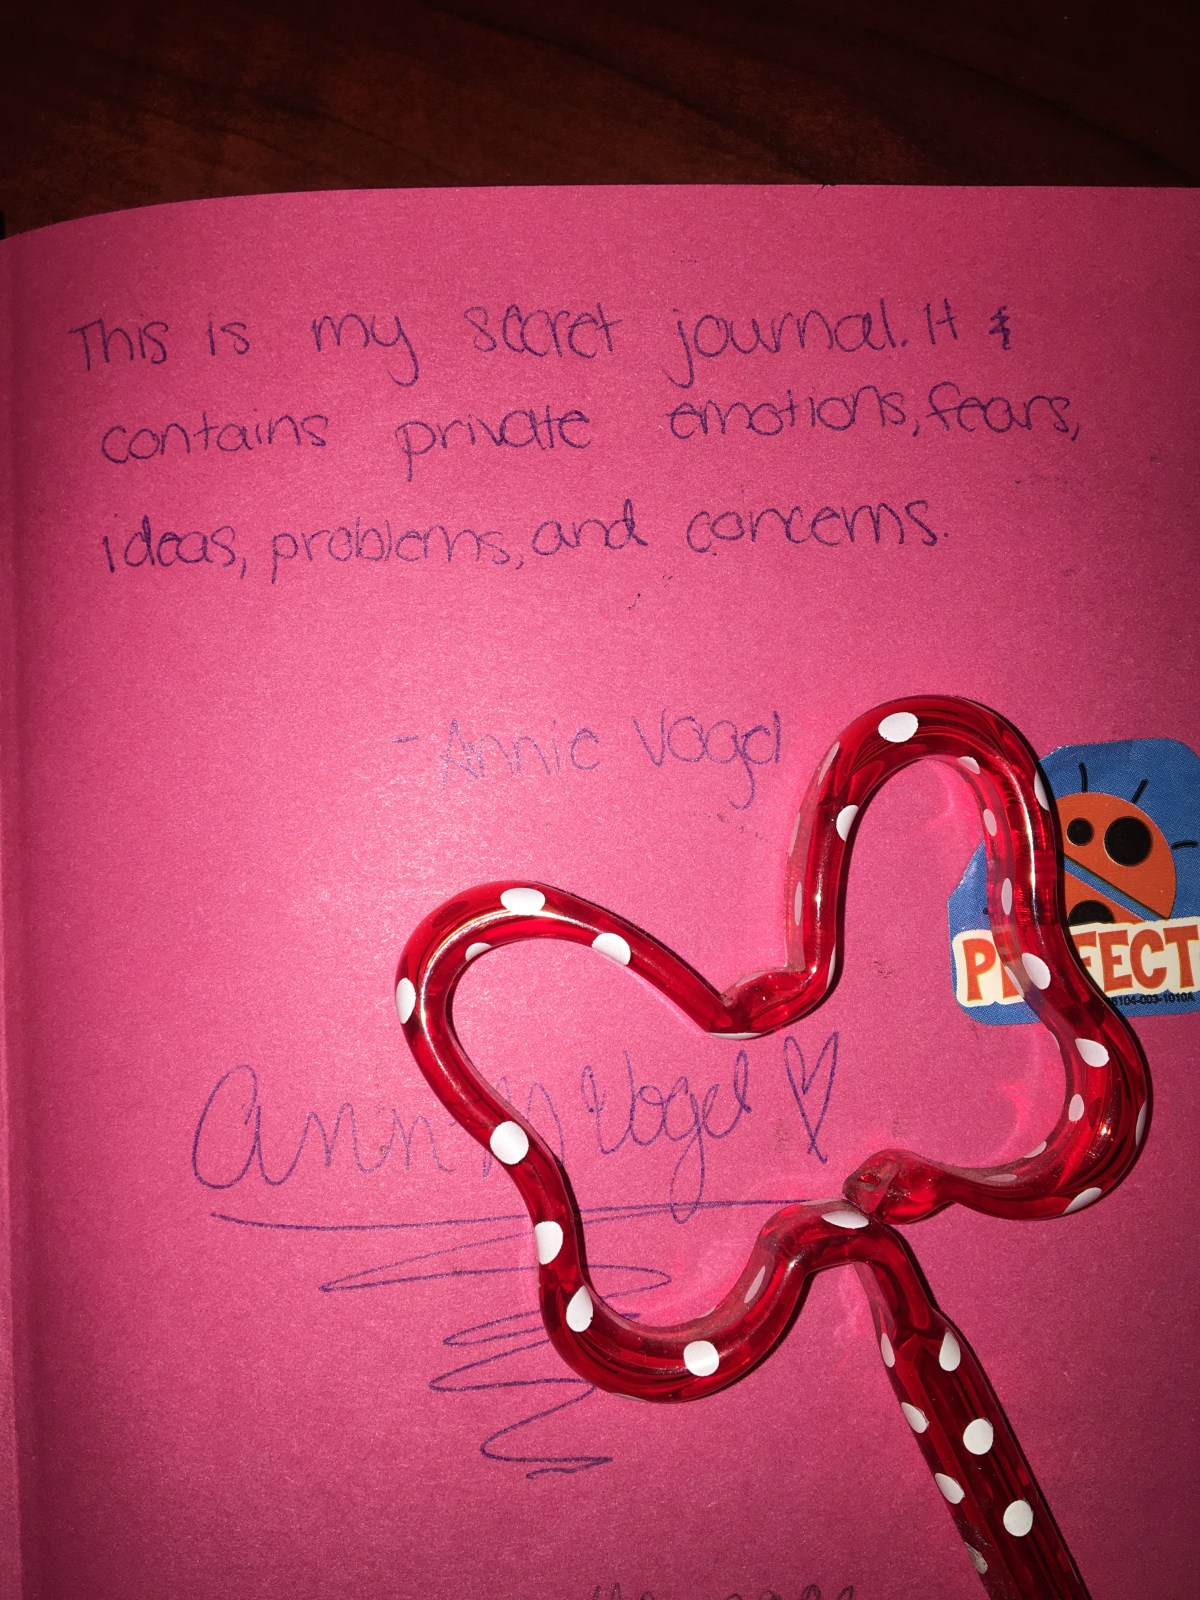 This is my secret journal. It
contains private emotions, fears,
ideas, problems, and concerns.
- Annie Vogel
PERFECT
5104-003-1010A
Vogel